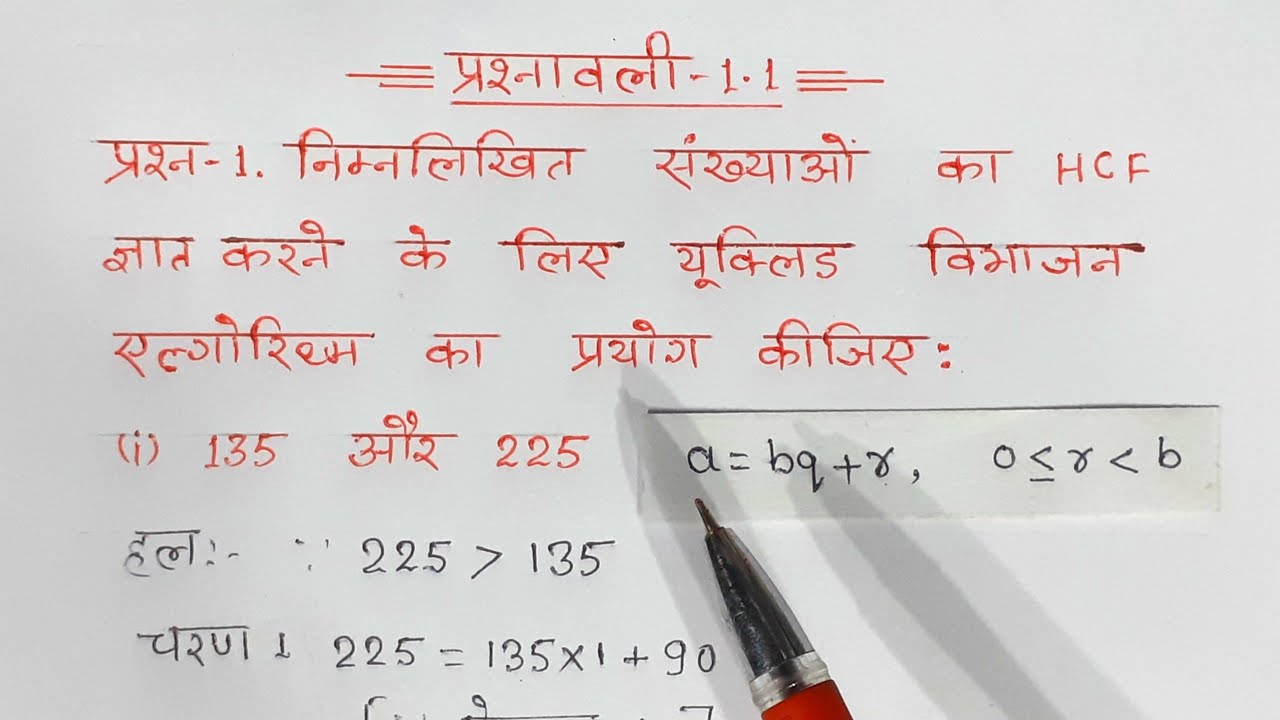 प्रश्नावली-1.1
प्रश्न-1. निम्नलिखित संख्याओं का HCF
ज्ञात करने के लिए यूक्लिड विभाजन
एल्गोरिथ्म का प्रयोग कीजिए:
(i) 135 और 225
a = bq + r, 0 ≤ r < b
हल:- ∵ 225 > 135
चरण 1 225 = 135×1 + 90